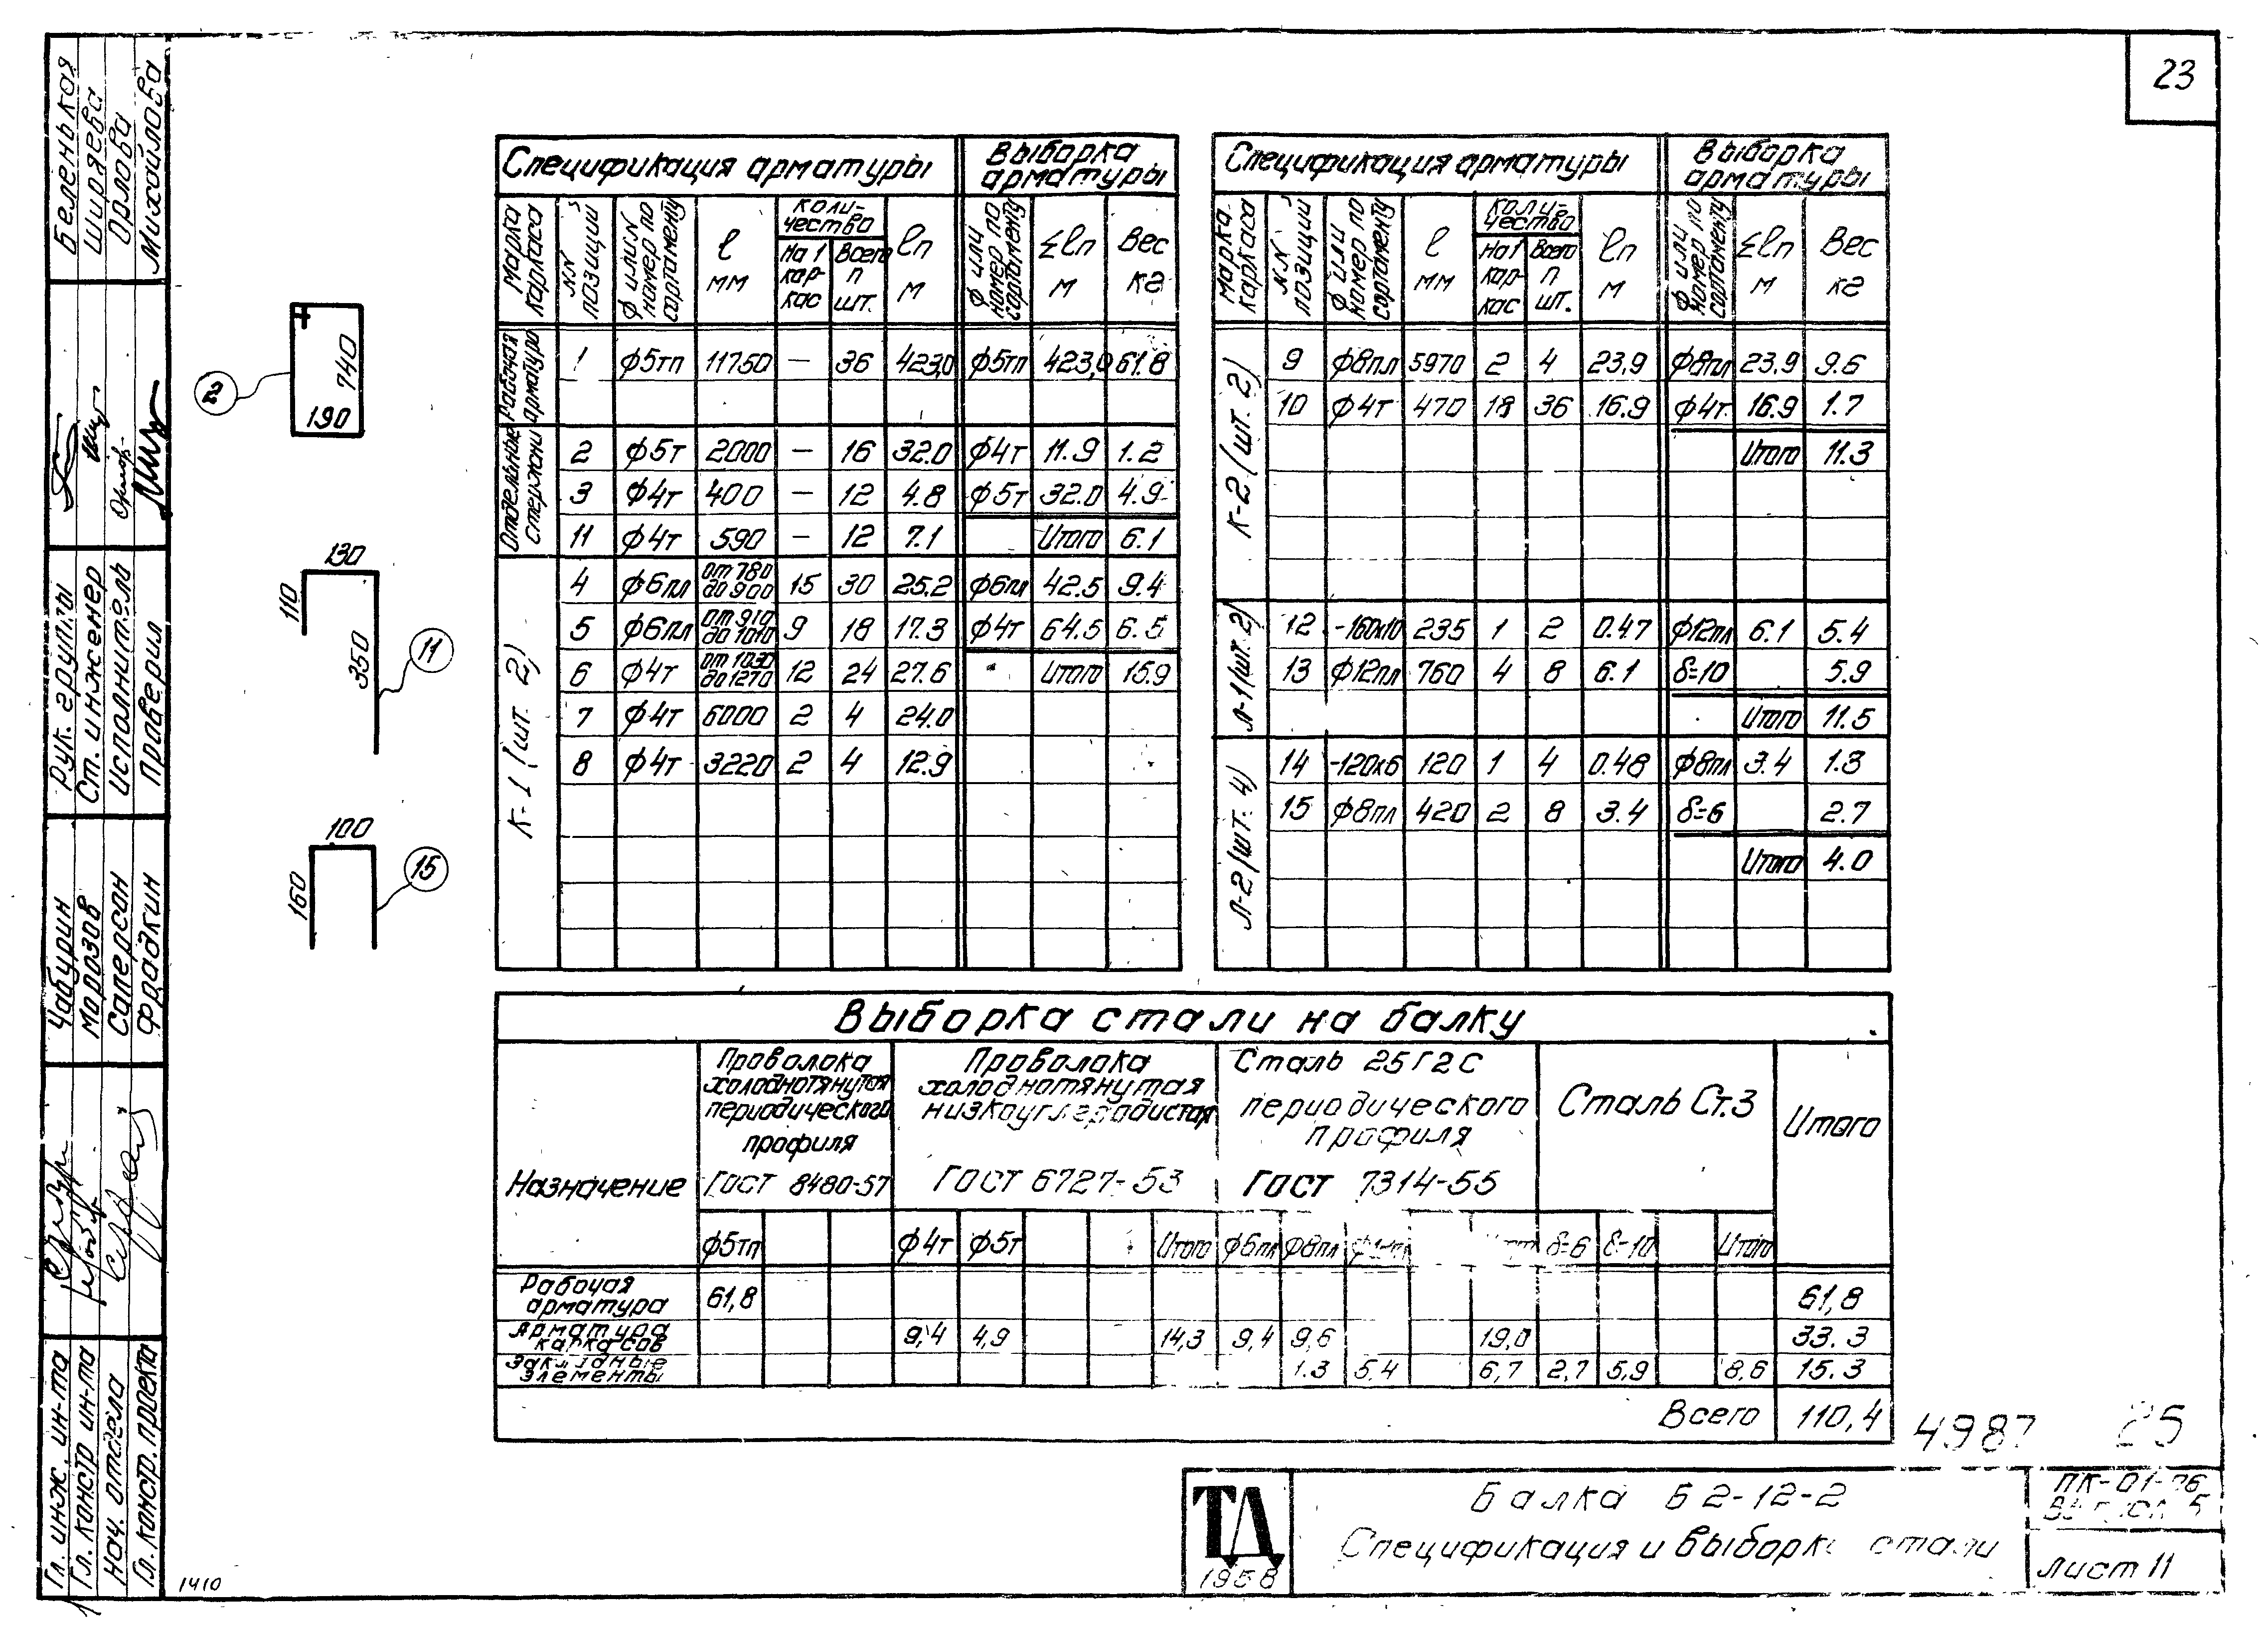 23
Беленькая
Ширяева
Орлова
Михайлова
Рук. группы
Ст. инженер
Исполнитель
Проверил
Чабурин
Морозов
Саперсон
Фрадкин
Гл. инж. ин-та
Гл. констр ин-та
Нач. отдела
Гл. констр. проекта
2
740
190
130
110
350
11
100
160
15
Спецификация арматуры
Выборка арматуры
Марка каркаса
NN позиций
ф или N номер по сортаменту
ℓ мм
Количество
На 1 каркас
Всего n шт.
ℓn м
ф или номер по сортаменту
Σℓn м
Вес кг
Рабочая арматура
1 ф5тп 11750 — 36 423,0 ф5тп 423,0 61.8
Отдельные стержни
2 ф5т 2000 — 16 32.0 ф4т 11.9 1.2
3 ф4т 400 — 12 4.8 ф5т 32.0 4.9
11 ф4т 590 — 12 7.1 Итого 6.1
К-1 (шт. 2)
4 ф6пл от 780 до 900 15 30 25.2 ф6пл 42.5 9.4
5 ф6пл от 910 до 1010 9 18 17.3 ф4т 64.5 6.5
6 ф4т от 1030 до 1270 12 24 27.6 Итого 15.9
7 ф4т 6000 2 4 24.0
8 ф4т 3220 2 4 12.9
Спецификация арматуры
Выборка арматуры
Марка каркаса
NN позиций
ф или номер по сортаменту
ℓ мм
Количество
На 1 каркас
Всего n шт.
ℓn м
ф или номер по сортаменту
Σℓn м
Вес кг
К-2 (шт. 2)
9 ф8пл 5970 2 4 23,9 ф8пл 23,9 9.6
10 ф4т 470 18 36 16.9 ф4т 16.9 1.7
Итого 11.3
Л-1 (шт. 2)
12 -160х10 235 1 2 0.47 ф12пл 6.1 5.4
13 ф12пл 760 4 8 6.1 δ=10 5.9
Итого 11.5
Л-2 (шт. 4)
14 -120х6 120 1 4 0.48 ф8пл 3.4 1.3
15 ф8пл 420 2 8 3.4 δ=6 2.7
Итого 4.0
Выборка стали на балку
Назначение
Проволока холоднотянутая периодического профиля ГОСТ 8480-57
Проволока холоднотянутая низкоуглеродистая ГОСТ 6727-53
Сталь 25Г2С периодического профиля ГОСТ 7314-55
Сталь Ст.3
Итого
ф5тп ф4т ф5т Итого ф6пл ф8пл δ=6 δ=10 Итого
Рабочая арматура 61,8 61,8
Арматура каркасов 9,4 4,9 14,3 9,4 9,6 19,0 33.3
Закладные элементы 1.3 5.4 6,7 2,7 5,9 8,6 15.3
Всего 110,4
4987 25
ТД
1958
Балка Б2-12-2
Спецификация и выборка стали
Лист 11
1410